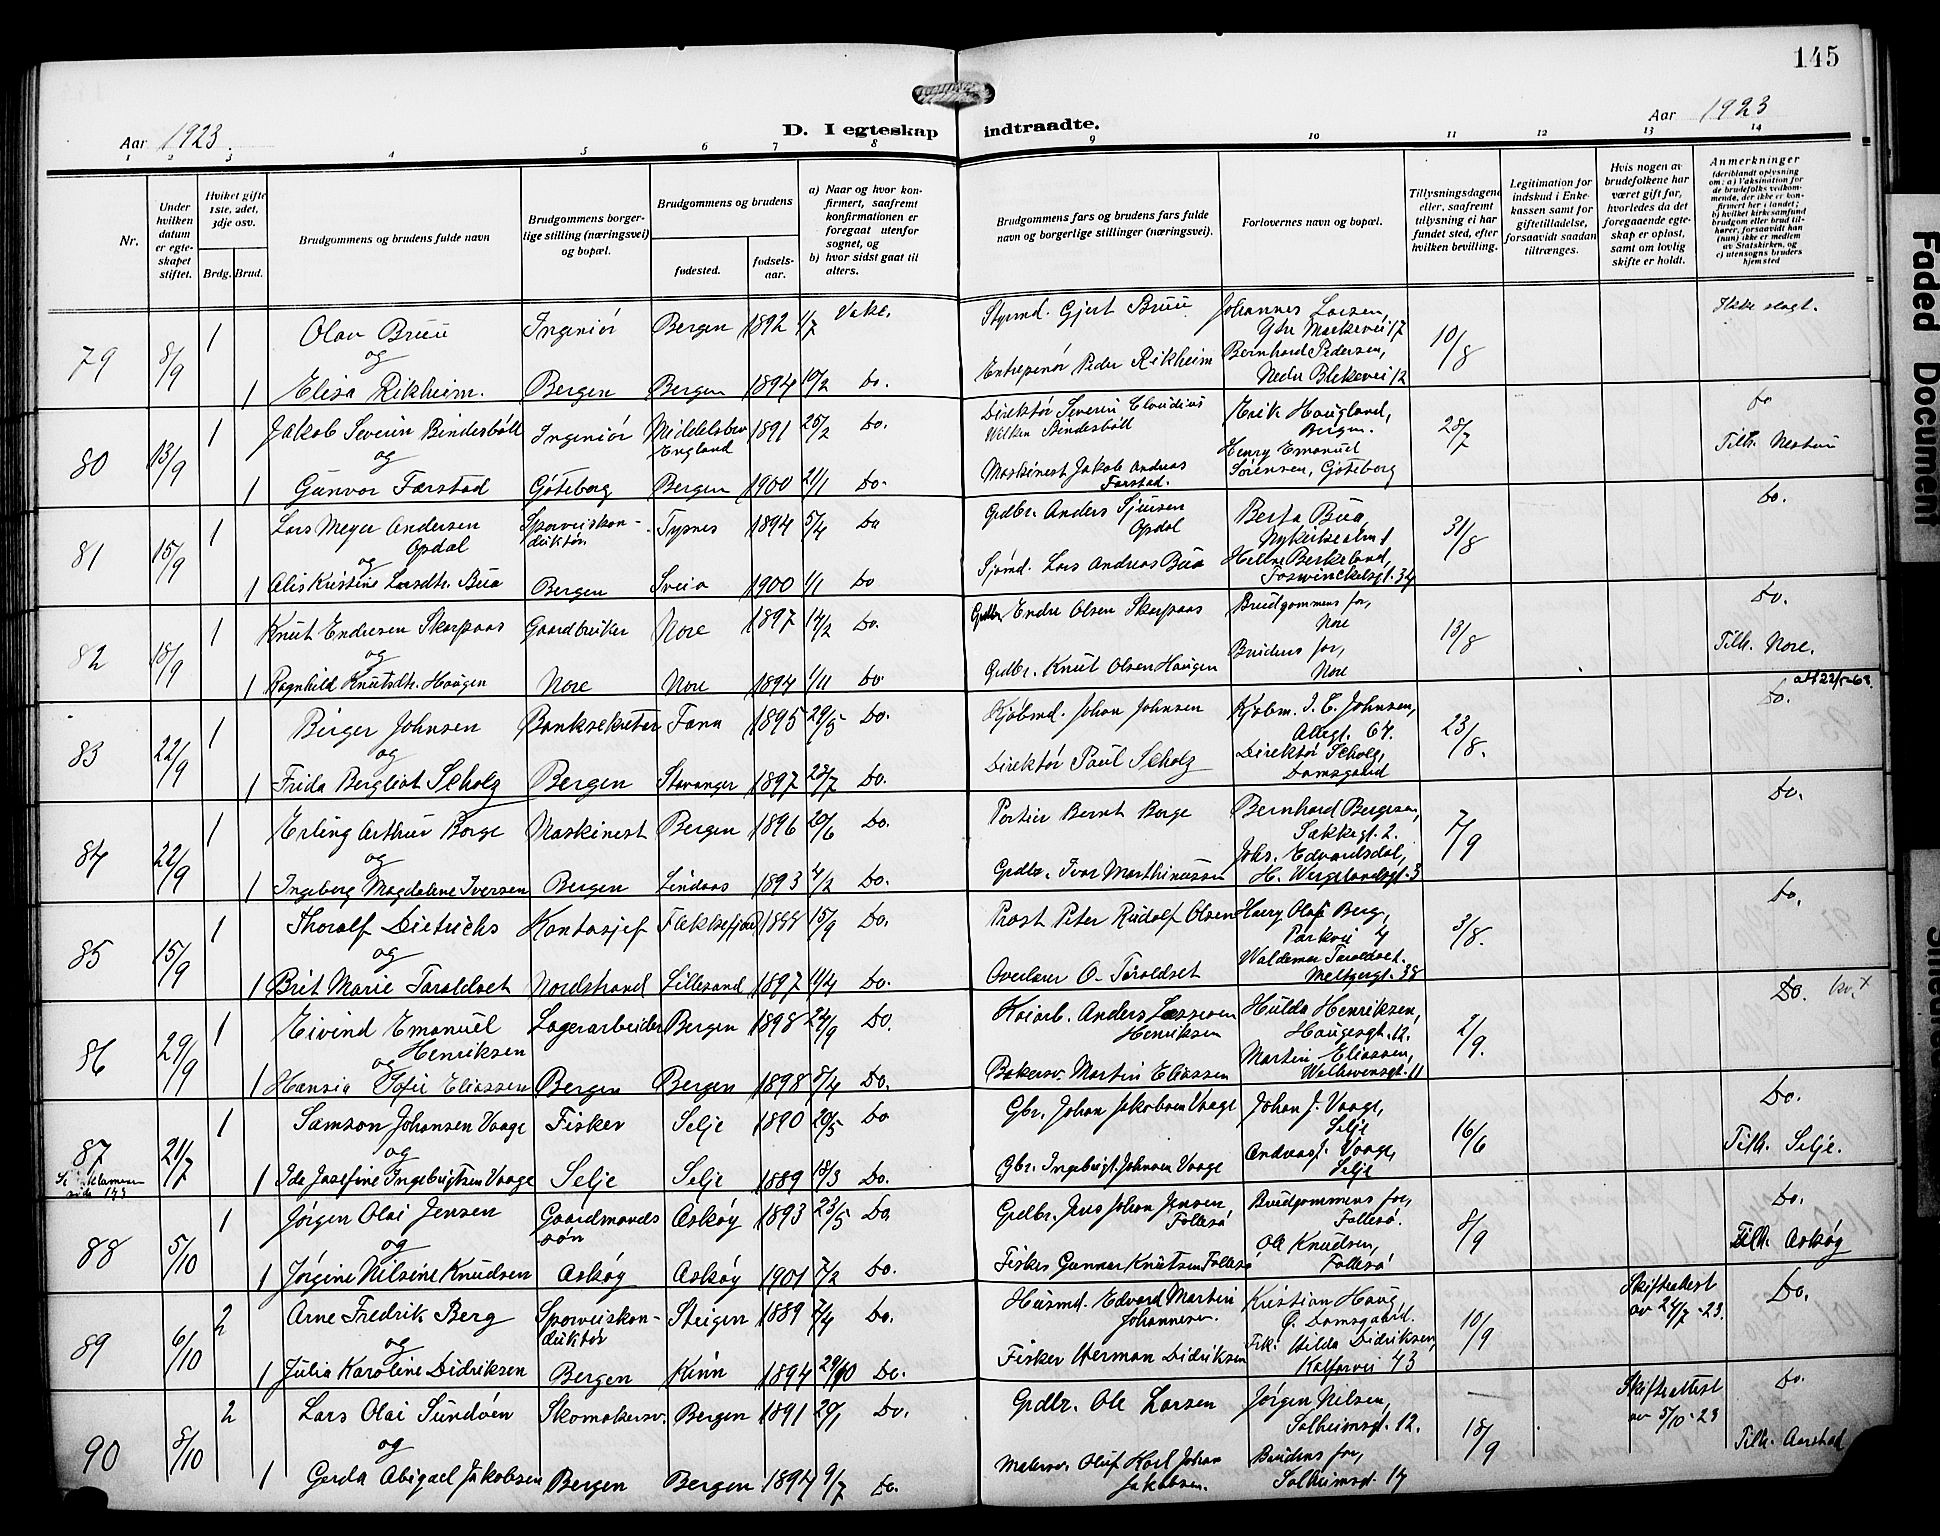 145
Aar 1923.
D. I egteskap indtraadte.
Aar 1923
1 2 3 4 5 6 7 8 9 10 11 12 13 14
Nr.
Under hvilken datum er egteskapet stiftet.
Hvilket gifte 1ste, 2det, 3dje osv.
Brdg. Brud.
Brudgommens og brudens fulde navn
Brudgommens borgerlige stilling (næringsvei) og bopæl.
Brudgommens og brudens
fødested.
fødselsaar.
a) Naar og hvor konfirmert, saafremt konfirmationen er foregaat utenfor sognet, og
b) hvor sidst gaat til alters.
Brudgommens fars og brudens fars fulde navn og borgerlige stillinger (næringsvei).
Forlovernes navn og bopæl.
Tillysningsdagene eller, saafremt tillysning ei har fundet sted, efter hvilken bevilling.
Legitimation for indskud i Enkekassen samt for giftetilladelse, forsaavidt saadan tiltrænges.
Hvis nogen av brudefolkene har været gift før, hvorledes da det foregaaende egteskap er opløst, samt om lovlig skifte er holdt.
Anmerkninger (deriblandt oplysning om: a) Vaksination for de brudefolks vedkommende, der ikke er konfirmert her i landet; b) hvilket kirkesamfund brudgom eller brud tilhører, forsaavidt han (hun) ikke er medlem av Statskirken, og c) utensogns bruders hjemsted
79 8/9 1 Olav Bruu Ingeniør Bergen 1892 1/7 Styrmd. Gjert Bruu Johannes Larsen, Ydr Markevei 17 10/8
og
1 Elisa Rikheim. Bergen Bergen 1894 10/2 Do. Entrepenør Peder Rikheim Bernhard Pedersen, Nedr Blekevei 12
80 13/9 1 Jakob Severin Bindesbøll Ingeniør Middelsbro England 1891 25/2 Do. Direktør Severin Claudius Wilken Bindesbøll Erik Haugland, Bergen. 28/7 Do
og
1 Gunvor Farstad Gøteborg Bergen 1900 21/1 Do. Maskinest Jakob Andreas Farstad. Henry Emanuel Sørensen, Gøteborg
81 15/9 1 Lars Meyer Andersen Opdal Sporveiskonduktør Tysnes 1894 5/4 Do Grdbr. Anders Sjursen Opdal Berta Bua, Nykirkealm 1 31/8 Do.
og
1 Alis Kristine Larsdtr. Bua Bergen Sveio 1900 1/1 Do Sjømd. Lars Andreas Bua Fosswinckelsgt. 34
82 18/9 1 Knut Endresen Skarpaas Gaardbruker Nore 1897 14/2 Do. Grdbr. Endre Olsen Skarpaas Brudgommens far, Nore 13/8 Do.
og
1 Ragnhild Knutsdtr. Haugen Nore Nore 1894 1/11 Do Grdbr. Knut Olsen Haugen Brudens far, Nore Tilh. Nore.
83 22/9 1 Birger Johnsen Banksekretær Fana 1895 29/5 Do. Kjøbmd. Johan Johnsen Kjøbm. J. E. Johnsen, 23/8. Do.
og
1 Frida Bergliot Scholz Bergen Stavanger 1897 28/7 Do. Direktør Paul Scholz Direktør Scholz, Damsgaard
84 22/9 1 Erling Arthur Borge Maskinest Bergen 1896 20/6 Do. Portier Bernt Borge Bernhard Bergesen, Sækkegt. 2. 7/9 Do.
og
1 Ingeborg Magdalene Iversen Bergen Lindaas 1893 4/2 Do. Grdbr. Ivar Marthinussen Johs. Edvardsdal, H. Wergelandsgt. 3
85 15/9 1 Thoralf Dietrichs Kontorsjef Flekkefjord 15/9 Do. Prost Peter Rudolf Olsen Harry Olaf Berg, Parkvei 4 3/8. Do.
og
1 Brit Marie Taraldset Nordstrand Lillesand 1897 11/4 Do. Overlærer O. Taraldset Waldemar Taraldset. Meltzersgt. 38
86 29/9 1 Eivind Emanuel Henriksen Lagerarbeider Bergen 1898 24/9 Do. Kaiarb. Anders Lassesen Henriksen Hulda Henriksen, Haugesgt. 12. 2/9. Do.
og
1 Hansia Sofie Eliassen Bergen Bergen 1898 8/4 Do. Bakersv. Martin Eliassen Martin Eliassen, Welhavensgt. 11
87 21/7 1 Samson Johansen Vaage Fisker Selje 1890 20/5 Do Gbr. Johan Jakobsen Vaage Johan J. Vaage, Selje 16/6 Do.
og
1 Ida Josefine Ingebrigtsen Vaage Selje Selje 1889 18/3 Do. Gbr. Ingebrigt Johnsen Vaage Andreas J. Vaage, Selje Tilh. Selje.
88 5/10 1 Jørgen Olai Jensen Gaardmandssøn Askøy 1893 23/5 Do. Grdbr. Jens Johan Jensen, Follesø Brudgommens far, Follesø. 8/9 Do.
og
1 Jørgine Nilsine Knudsen Askøy Askøy 1901 7/2 Do. Fisker Gunnar Knutsen Follesø Ole Knudsen, Follesø Tilh. Askøy
89 6/10 2 Arne Fredrik Berg Sporveiskonduktør Steigen 1889 7/4 Do. Husmd. Edvard Martin Johannesen. Kristian Haug, Ø. Damsgaard. 10/9 Skifteattest av 24/7-23. Do.
og
1 Julia Karoline Didriksen Bergen Kinn 1894 29/10 Do. Fisker Herman Didriksen Frk. Hilda Didriksen, Kalfarvei 43
90 8/10 2 Lars Olai Sundøen Skomakersv. Bergen 1891 20/1 Do. Grdbr. Ole Larsen Jørgen Nilsen, Solheimsgt. 12. 18/9 Skifteattest av 5/10-23 Do.
og
1 Gerda Abigael Jakobsen Bergen Bergen 1894 9/7 Do. Malersv. Oluf Karl Johan Jakobsen. Brudens far, Solheimsgt. 14 Tilh. Aarstad
Faded Document